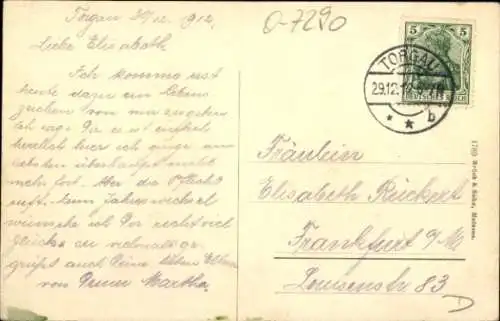 Torgau 30/12. 1912.
O-7290
Liebe Elisabeth
Ich komme erst
heute dazu ein Lebens
zeichen von mir zugeben
Ich sage Dir es ist einfach
herrlich hier ich ginge am
liebsten überhaupt nicht
mehr fort. Aber die Pflicht
ruft. Zum Jahreswechsel
wünsche ich Dir recht viel
Glück u. vielmals ge-
grüßt auch Deine lieben Eltern
von Deiner Martha.
5
DEUTSCHES REICH
TORGAU
29.12.12
* * b
Fräulein
Elisabeth Rückert
Frankfurt a/M.
Louisenstr 83
1793 Brück & Sohn, Meissen.
D